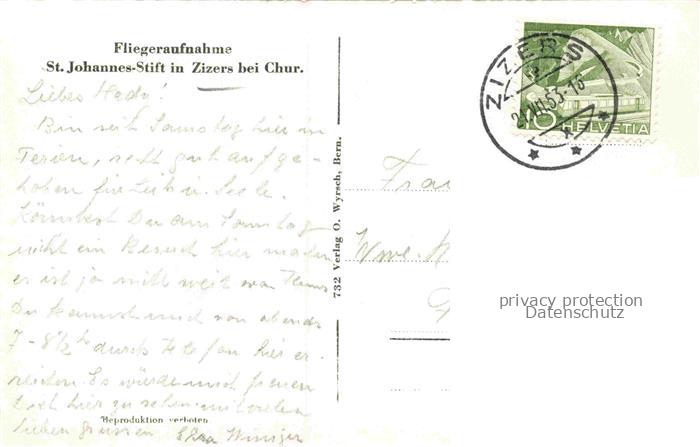 Fliegeraufnahme
St. Johannes-Stift in Zizers bei Chur.
Liebes Hedy!
Bin seit Samstag hier in
Ferien, recht gut aufge-
hoben für Leib u. Seele.
Könntest Du am Sonntag
nicht ein Besuch hier machen
es ist ja nicht weit von
Du kannst mich von abends
7 - 8½ h durch Telefon hier er-
reichen. Es würde mich freuen
Dich hier zu sehen. mit vielen
lieben Grüssen Winiger
Reproduktion verboten
732 Verlag O. Wyrsch, Bern.
ZIZERS
53-16
10 HELVETIA
Frau
Wwe.
privacy protection
Datenschutz